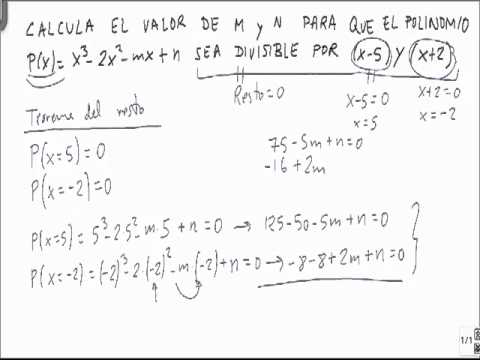 CALCULA EL VALOR DE M y N PARA QUE EL POLINOMIO
P(x) = x³ - 2x² - mx + n SEA DIVISIBLE POR (x-5) Y (x+2)
Resto = 0
x-5=0
x=5
x+2=0
x=-2
Teorema del resto
P(x=5) = 0
P(x=-2) = 0
75 - 5m + n = 0
-16 + 2m
P(x=5) = 5³ - 2·5² - m·5 + n = 0 → 125 - 50 - 5m + n = 0
P(x=-2) = (-2)³ - 2·(-2)² - m·(-2) + n = 0 → -8 - 8 + 2m + n = 0
1/1